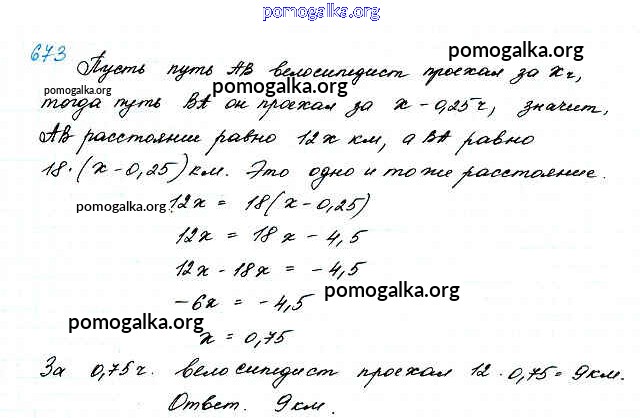 pomogalka.org
673
pomogalka.org
Пусть путь АВ велосипедист проехал за x ч,
pomogalka.org
тогда путь ВА он проехал за x - 0,25 ч, значит,
АВ расстояние равно 12x км, а ВА равно
18·(x-0,25) км. Это одно и то же расстояние.
pomogalka.org
12x = 18(x-0,25)
12x = 18x - 4,5
12x - 18x = -4,5
-6x = -4,5
pomogalka.org
pomogalka.org
x = 0,75
За 0,75 ч. велосипедист проехал 12·0,75=9км.
Ответ. 9км.